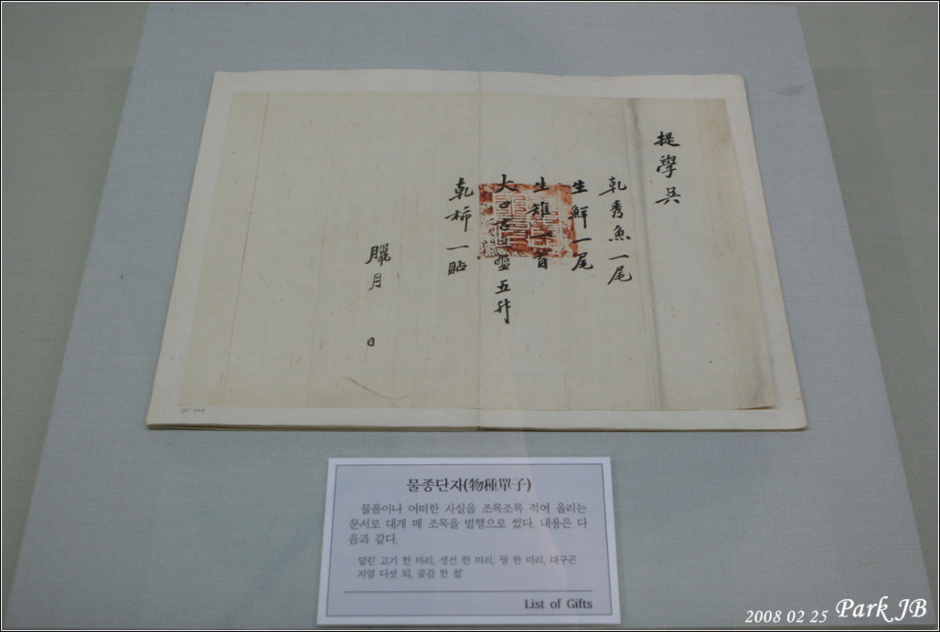 提學吳
乾秀魚一尾
生鮮一尾
生雉一首
大口古之醢五升
乾柿一貼
臘月 日
물종단자(物種單子)
물품이나 어떠한 사실을 조목조목 적어 올리는
문서로 대개 매 조목을 별행으로 썼다. 내용은 다
음과 같다.
말린 고기 한 마리, 생선 한 마리, 꿩 한 마리, 대구곤
지염 다섯 되, 곶감 한 첩'
List of Gifts
2008 02 25 Park JB